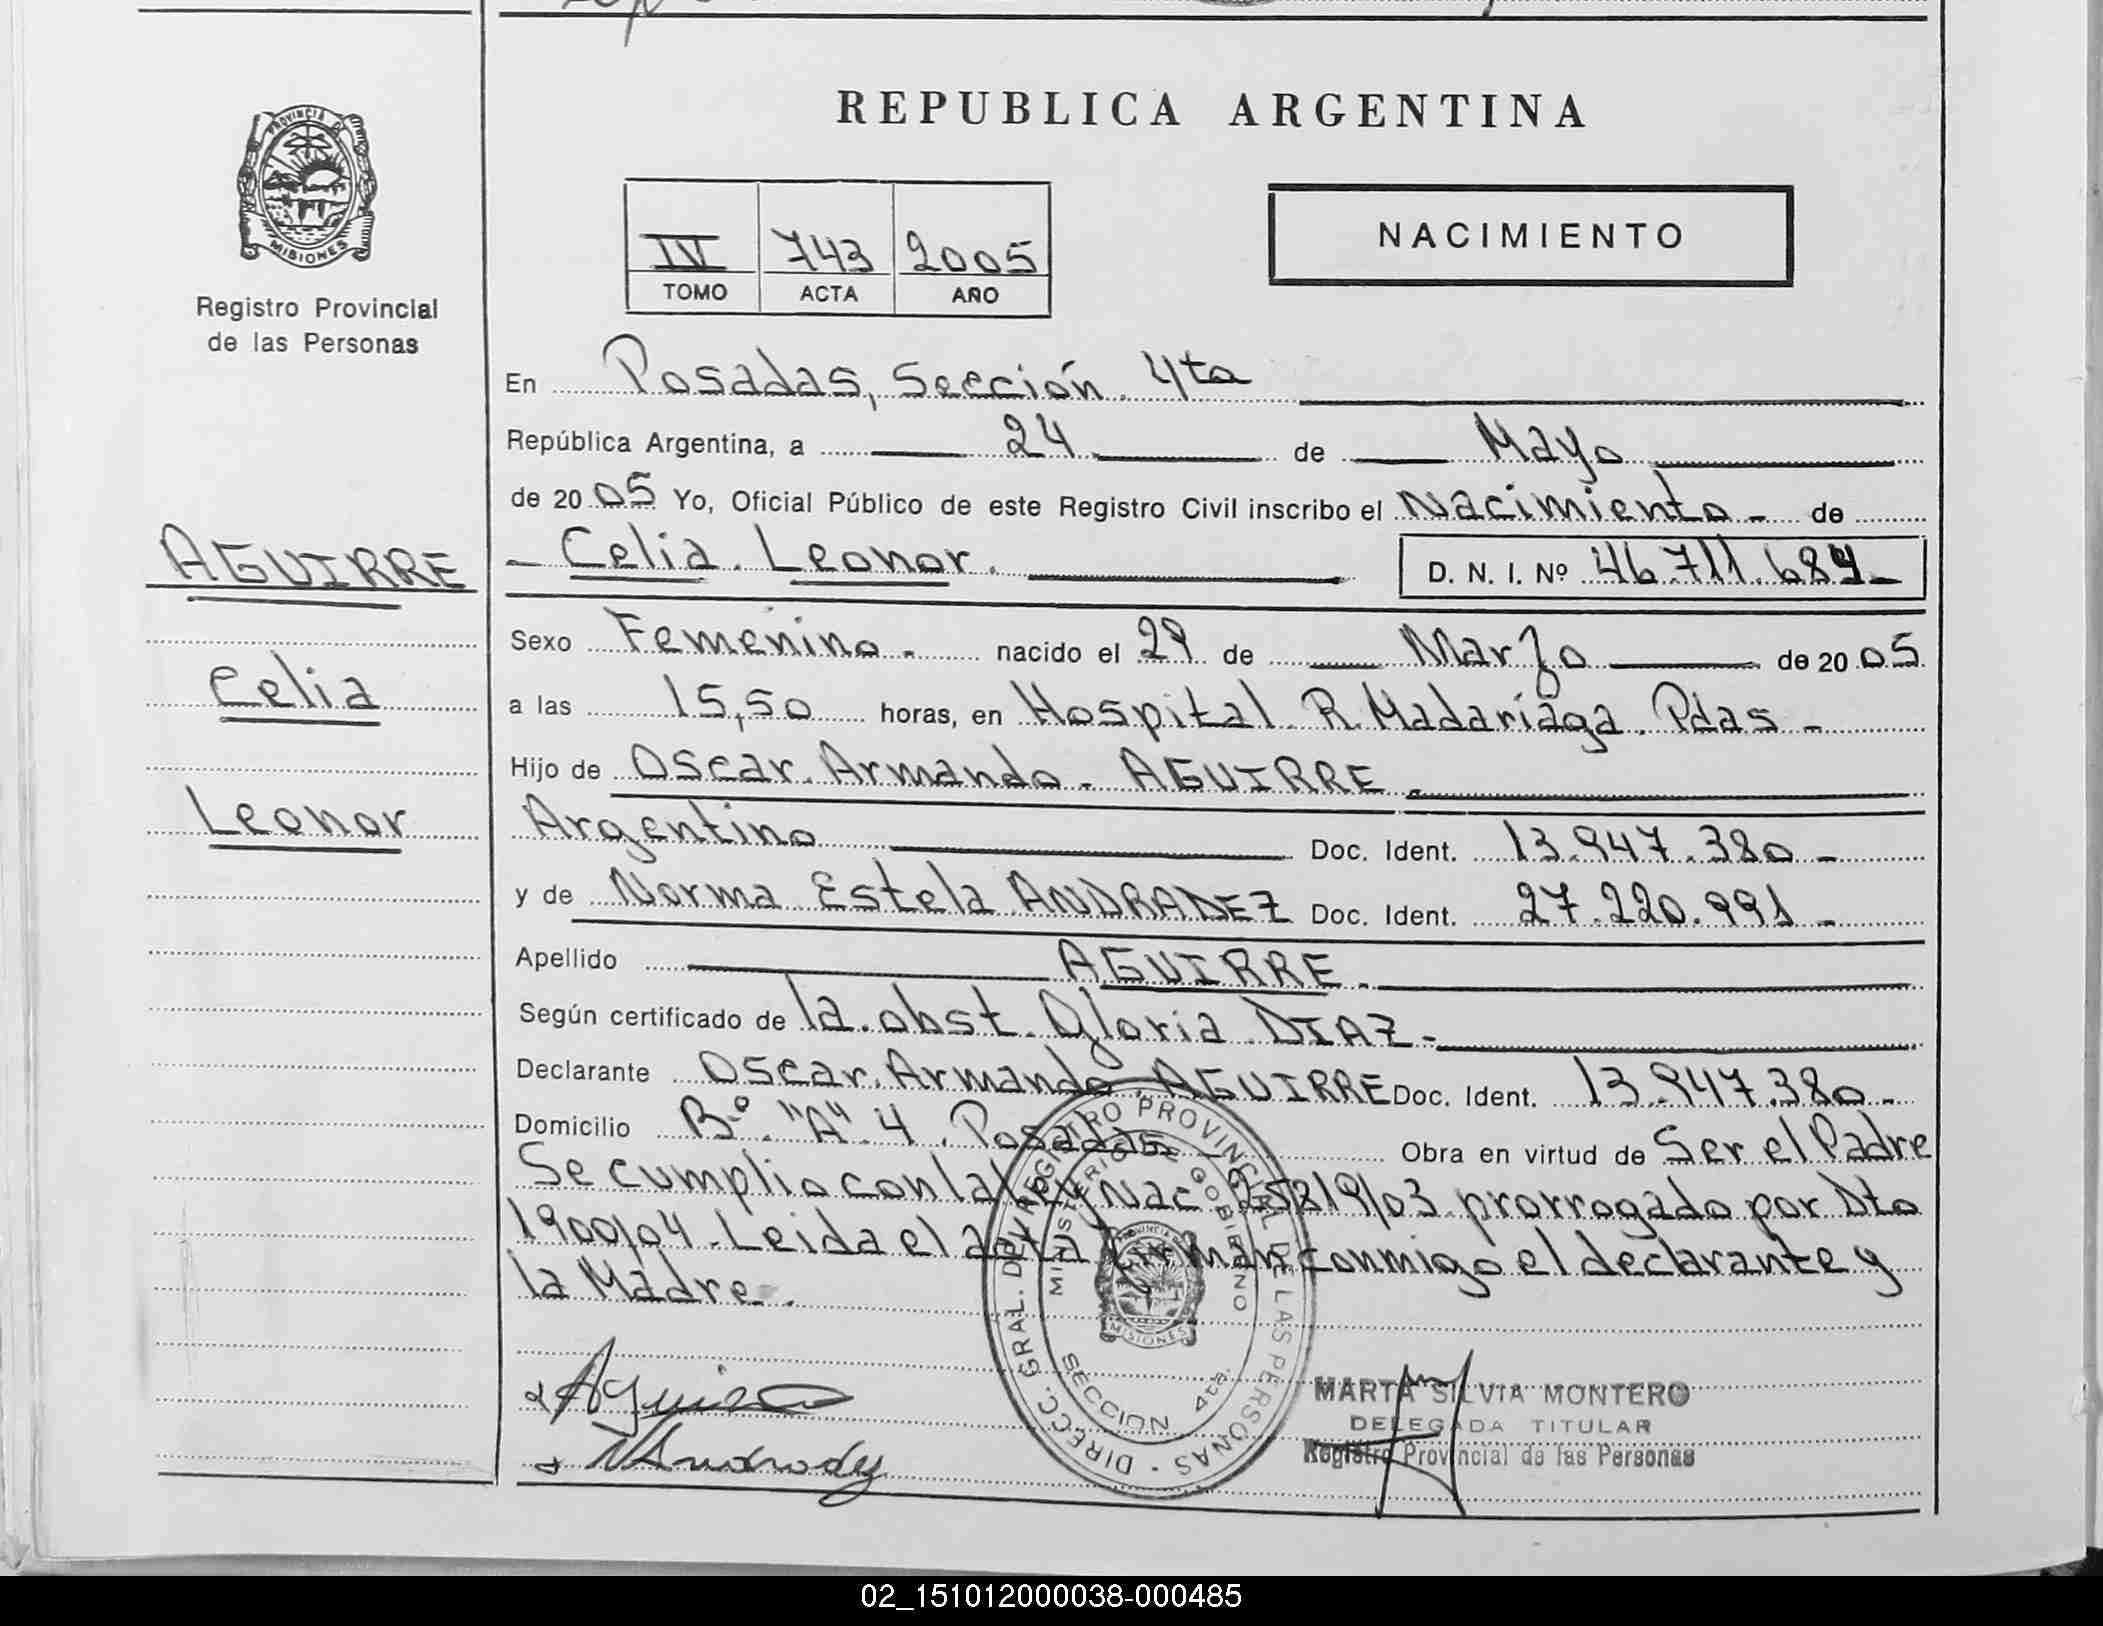 REPUBLICA ARGENTINA
PROVINCIA D MISIONES
Registro Provincial
de las Personas
IV 743 2005
TOMO ACTA AÑO
NACIMIENTO
En Posadas, Sección 4ta
República Argentina, a 24 de Mayo
de 2005 Yo, Oficial Público de este Registro Civil inscribo el Nacimiento - de
AGUIRRE
Celia
Leonor
- Celia Leonor. D. N. I. Nº 46.711.684-
Sexo Femenino - nacido el 29 de Marzo de 2005
a las 15,50 horas, en Hospital R. Madariaga. Pdas -
Hijo de Oscar Armando - AGUIRRE
Argentino Doc. Ident. 13.947.380 -
y de Norma Estela ANDRADEZ Doc. Ident. 27.220.991 -
Apellido AGUIRRE.
Según certificado de la obst. Gloria DIAZ -
Declarante Oscar Armando AGUIRRE Doc. Ident. 13.947.380 -
Domicilio Bº "A" 4. Posadas - Obra en virtud de Ser el Padre
Se cumplio con la Ley Nac 25819/03 prorrogado por Dto
1900/04. Leida el acta firman conmigo el declarante y
la Madre.
DIRECC. GRAL. DEL REGISTRO PROVINCIAL DE LAS PERSONAS
MINISTERIO DE GOBIERNO
MISIONES
SECCION 4ta.
MARTA SILVIA MONTERO
DELEGADA TITULAR
Registro Provincial de las Personas
02_151012000038-000485